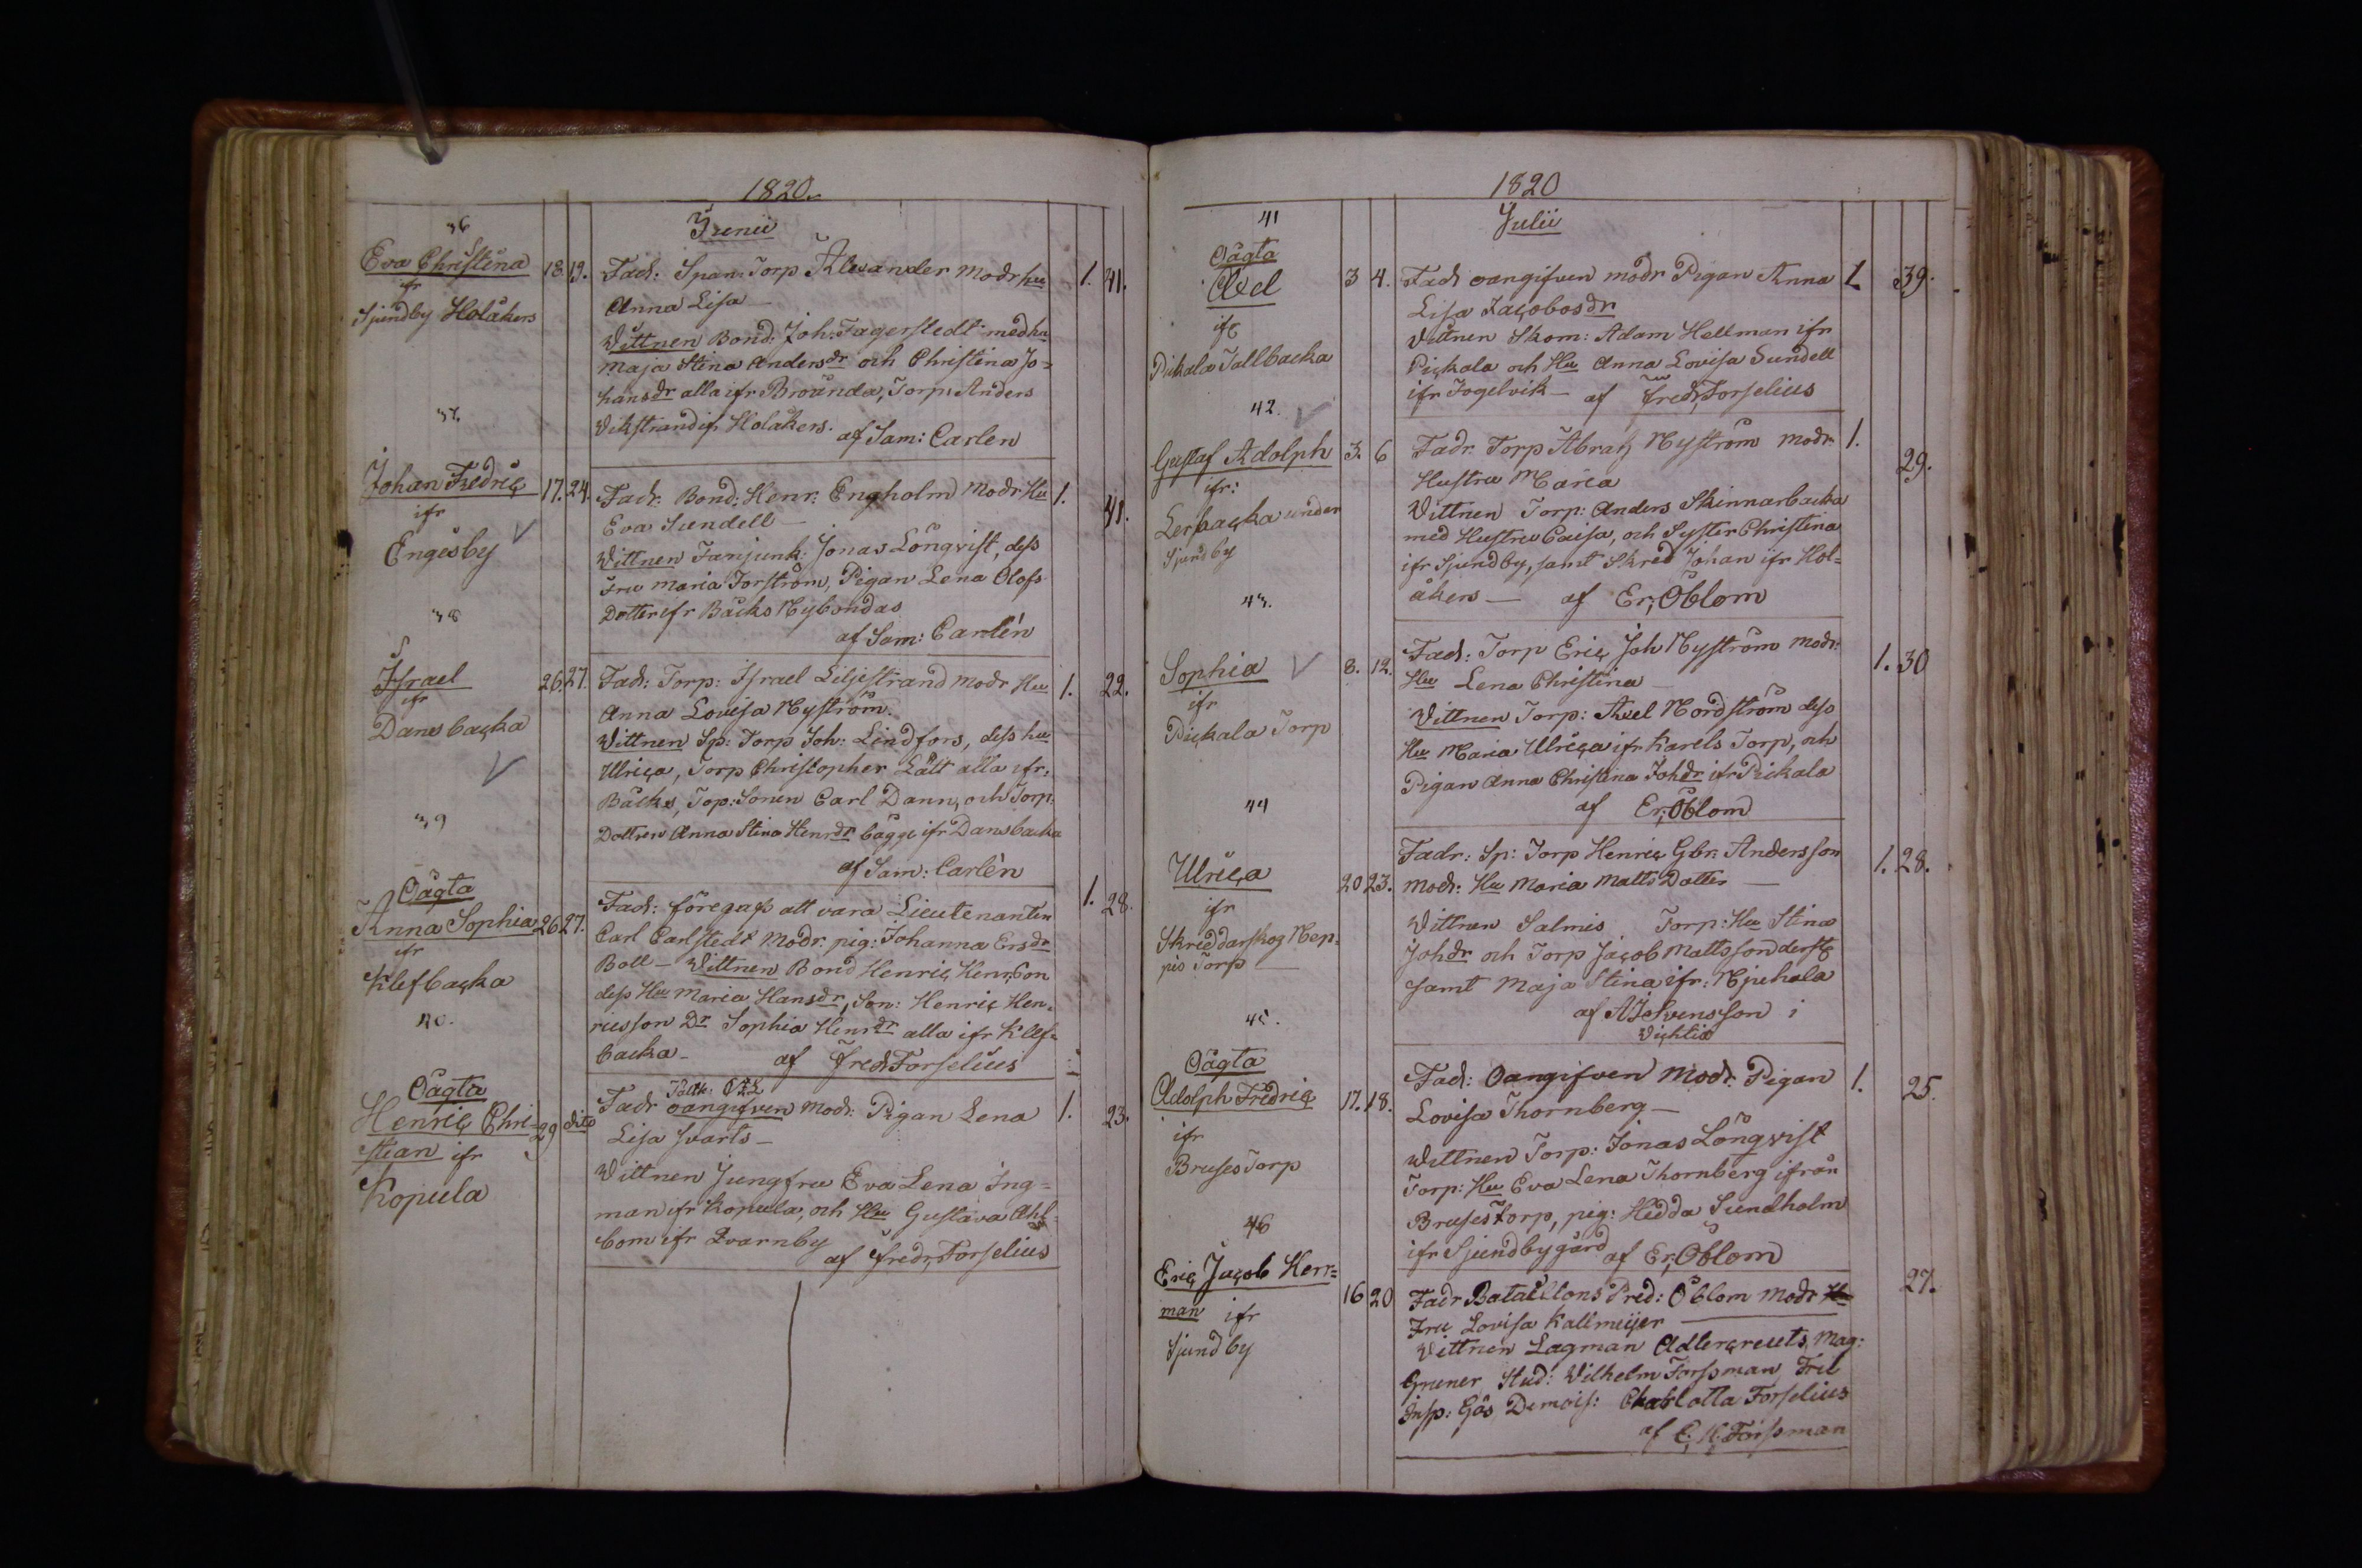 1820.
Junii
36
Eva Christina 18. 19. Fad: Span: Torp Alexander Modr hu 1. 41.
ifr Anna Lisa
Sjundby Holåkers
Vittnen Bond: Joh: Fagerstedt med hu
Maja Stina Andersdr och Christina Jo=
hansdr alla ifr Brounda, Torp: Anders
Vikstrand ifr Holåkers. af Sam: Carlen
37.
Johan Fredric 17. 24. Fadr. Bond: Henr: Engholm Modr Hu 1. 41.
ifr Eva Sundell
Engisby
Vittnen Fanjunk: Jonas Lönqvist, dess
Fru Maria Forström, Pigan Lena Olofs
Dotter ifr Bäcks Nybondas
af Sam: Carlén
38
Israel 26. 27. Fad: Torp: Israel Liljestrand Modr Hu 1. 22.
ifr Anna Lovisa Nyström.
Dansbacka
Vittnen Sp: Torp Joh: Lindfors, dess hu
Ulrica, Torp Christopher Lätt alla ifr.
Bäcks, Top: Sonen Carl Dann, och Torp:
Dottren Anna Stina Henrdr bägge ifr Dansbacka
af Sam: Carlén
39
Oägta
Anna Sophia 26 27. Fad: föregafs att vara Lieutenanten 1. 28.
ifr Carl Carlstedt Modr. pig: Johanna Ersdr
Klefbacka
Boll – Vittnen Bond Henric Henr:Son
dess Hu Maria Hansdr, Son: Henric Hen-
ricsson Dr Sophia Henrdr alla ifr Klef-
backa – af Fredr Forselius
40.
Oägta
Henric Chri- 29 dito Fadr oangifven Modr: Pigan Lena 1. 23.
stian ifr Lisa Svarts –
Kopula
Vittnen Jungfru Eva Lena Ing=
man ifr Kopula, och Hu Gustava Ahl-
bom ifr Qvarnby
af Fredr, Forselius
1820
Julii
41
Oägta
Axel 3 4. Fadr oangifven modr Pigan Anna 1 39.
ifr Lisa Jacobosdr
Pickala Tallbacka
Vittnen Skom: Adam Hellman ifr
Pickala och Hu Anna Lovisa Sundell
ifr Fogelvik – af Fredr, Forselius
42.
Gustaf Adolph 3. 6 Fadr. Torp Abrah Nyström modr. 1. 29.
ifr: Hustru Maria
Lerbacka under
Sjundby
Vittnen Torp: Anders Skinnarbacka
med Hustru Caisa, och Syster Christina
ifr Sjundby, samt Skred Johan ifr Hol-
åkers – af Er, Öblom
43.
Sophia 8. 12. Fad: Torp Eric Joh Nyström modr: 1. 30
ifr Hu Lena Christina
Pickala Torp
Vittnen Torp: Axel Nordström dess
Hu Maria Ulrica ifr Karels Torp, och
Pigan Anna Christina Johdr ifr Pickala
af Er, Öblom
44
Ulrica 20 23. Fadr: Sp: Torp Henric Gbr. Andersson 1. 28.
ifr modr: Hu Maria Matts Dotter –
Skreddarskog Nep-
pis Torp –
Vittnen Salmis Torp: Hu Stina
Johdr och Torp Jacob Mattsson derst
samt Maja Stina ifr: Njuhala
af A J Svensson i
Vichtis
45.
Oägta
Adolph Fredric 17. 18. Fad: Oangifven Modr. Pigan 1. 25.
ifr Lovisa Thornberg –
Bruses Torp
Vittnen Torp: Jonas Lönqvist
Torp: Hu Eva Lena Thornberg ifrån
Bruses Torp, pig: Hedda Sundholm
ifr Sjundby gård af Er, Öblom
46
Eric Jacob Herr= 16 20 Fadr Bataillons Pred: Öblom Modr 27.
man ifr Fru Lovisa Kallmeijer
Sjundby
Vittnen Lagman Adlercreuts, Mag:
Gruner Stud: Vilhelm Forssman Fru
Insp: Gös Demois: Charlotta Forselius
af C. H. Forssman